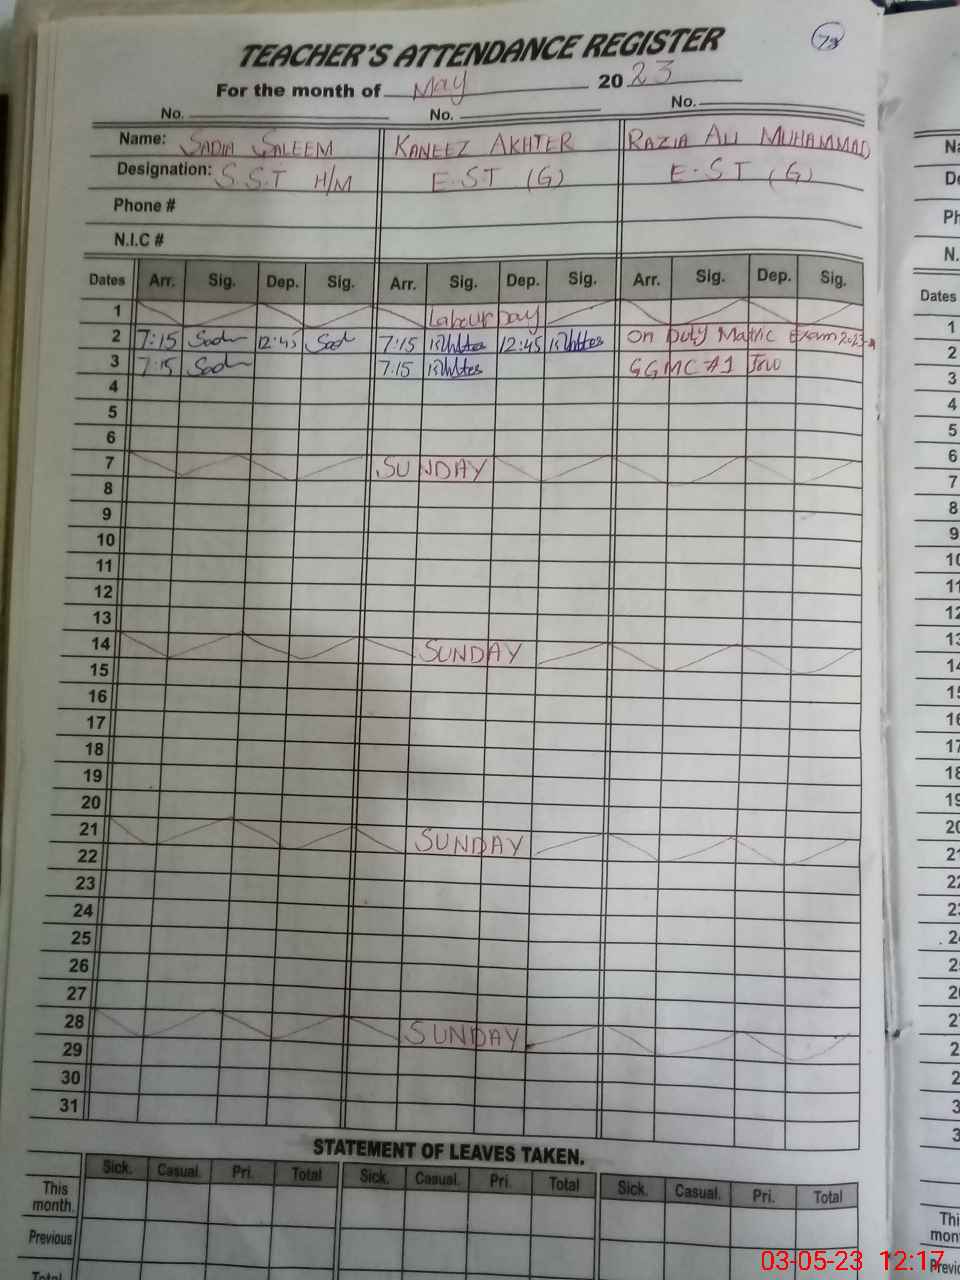 78
TEACHER'S ATTENDANCE REGISTER
For the month of May 2023
No. No. No.
Name: SADIA SALEEM KANEEZ AKHTER RAZIA ALI MUHAMMAD
Designation: S.S.T H/M E.S.T (G) E.S.T (G)
Phone #
N.I.C #
Dates Arr. Sig. Dep. Sig. Arr. Sig. Dep. Sig. Arr. Sig. Dep. Sig.
1 Labour Day
2 7:15 Sad 12:45 Sad 7:15 12:45 On Duty Matric Exam 2023
3 7:15 Sad 7:15 GGMC #1
4
5
6
7 SUNDAY
8
9
10
11
12
13
14 SUNDAY
15
16
17
18
19
20
21 SUNDAY
22
23
24
25
26
27
28 SUNDAY
29
30
31
STATEMENT OF LEAVES TAKEN.
Sick. Casual. Pri. Total Sick. Casual. Pri. Total Sick. Casual. Pri. Total
This month.
Previous
Total
Dates
1
2
3
4
5
6
7
8
9
10
11
12
13
14
16
17
20
21
03-05-23 12:17